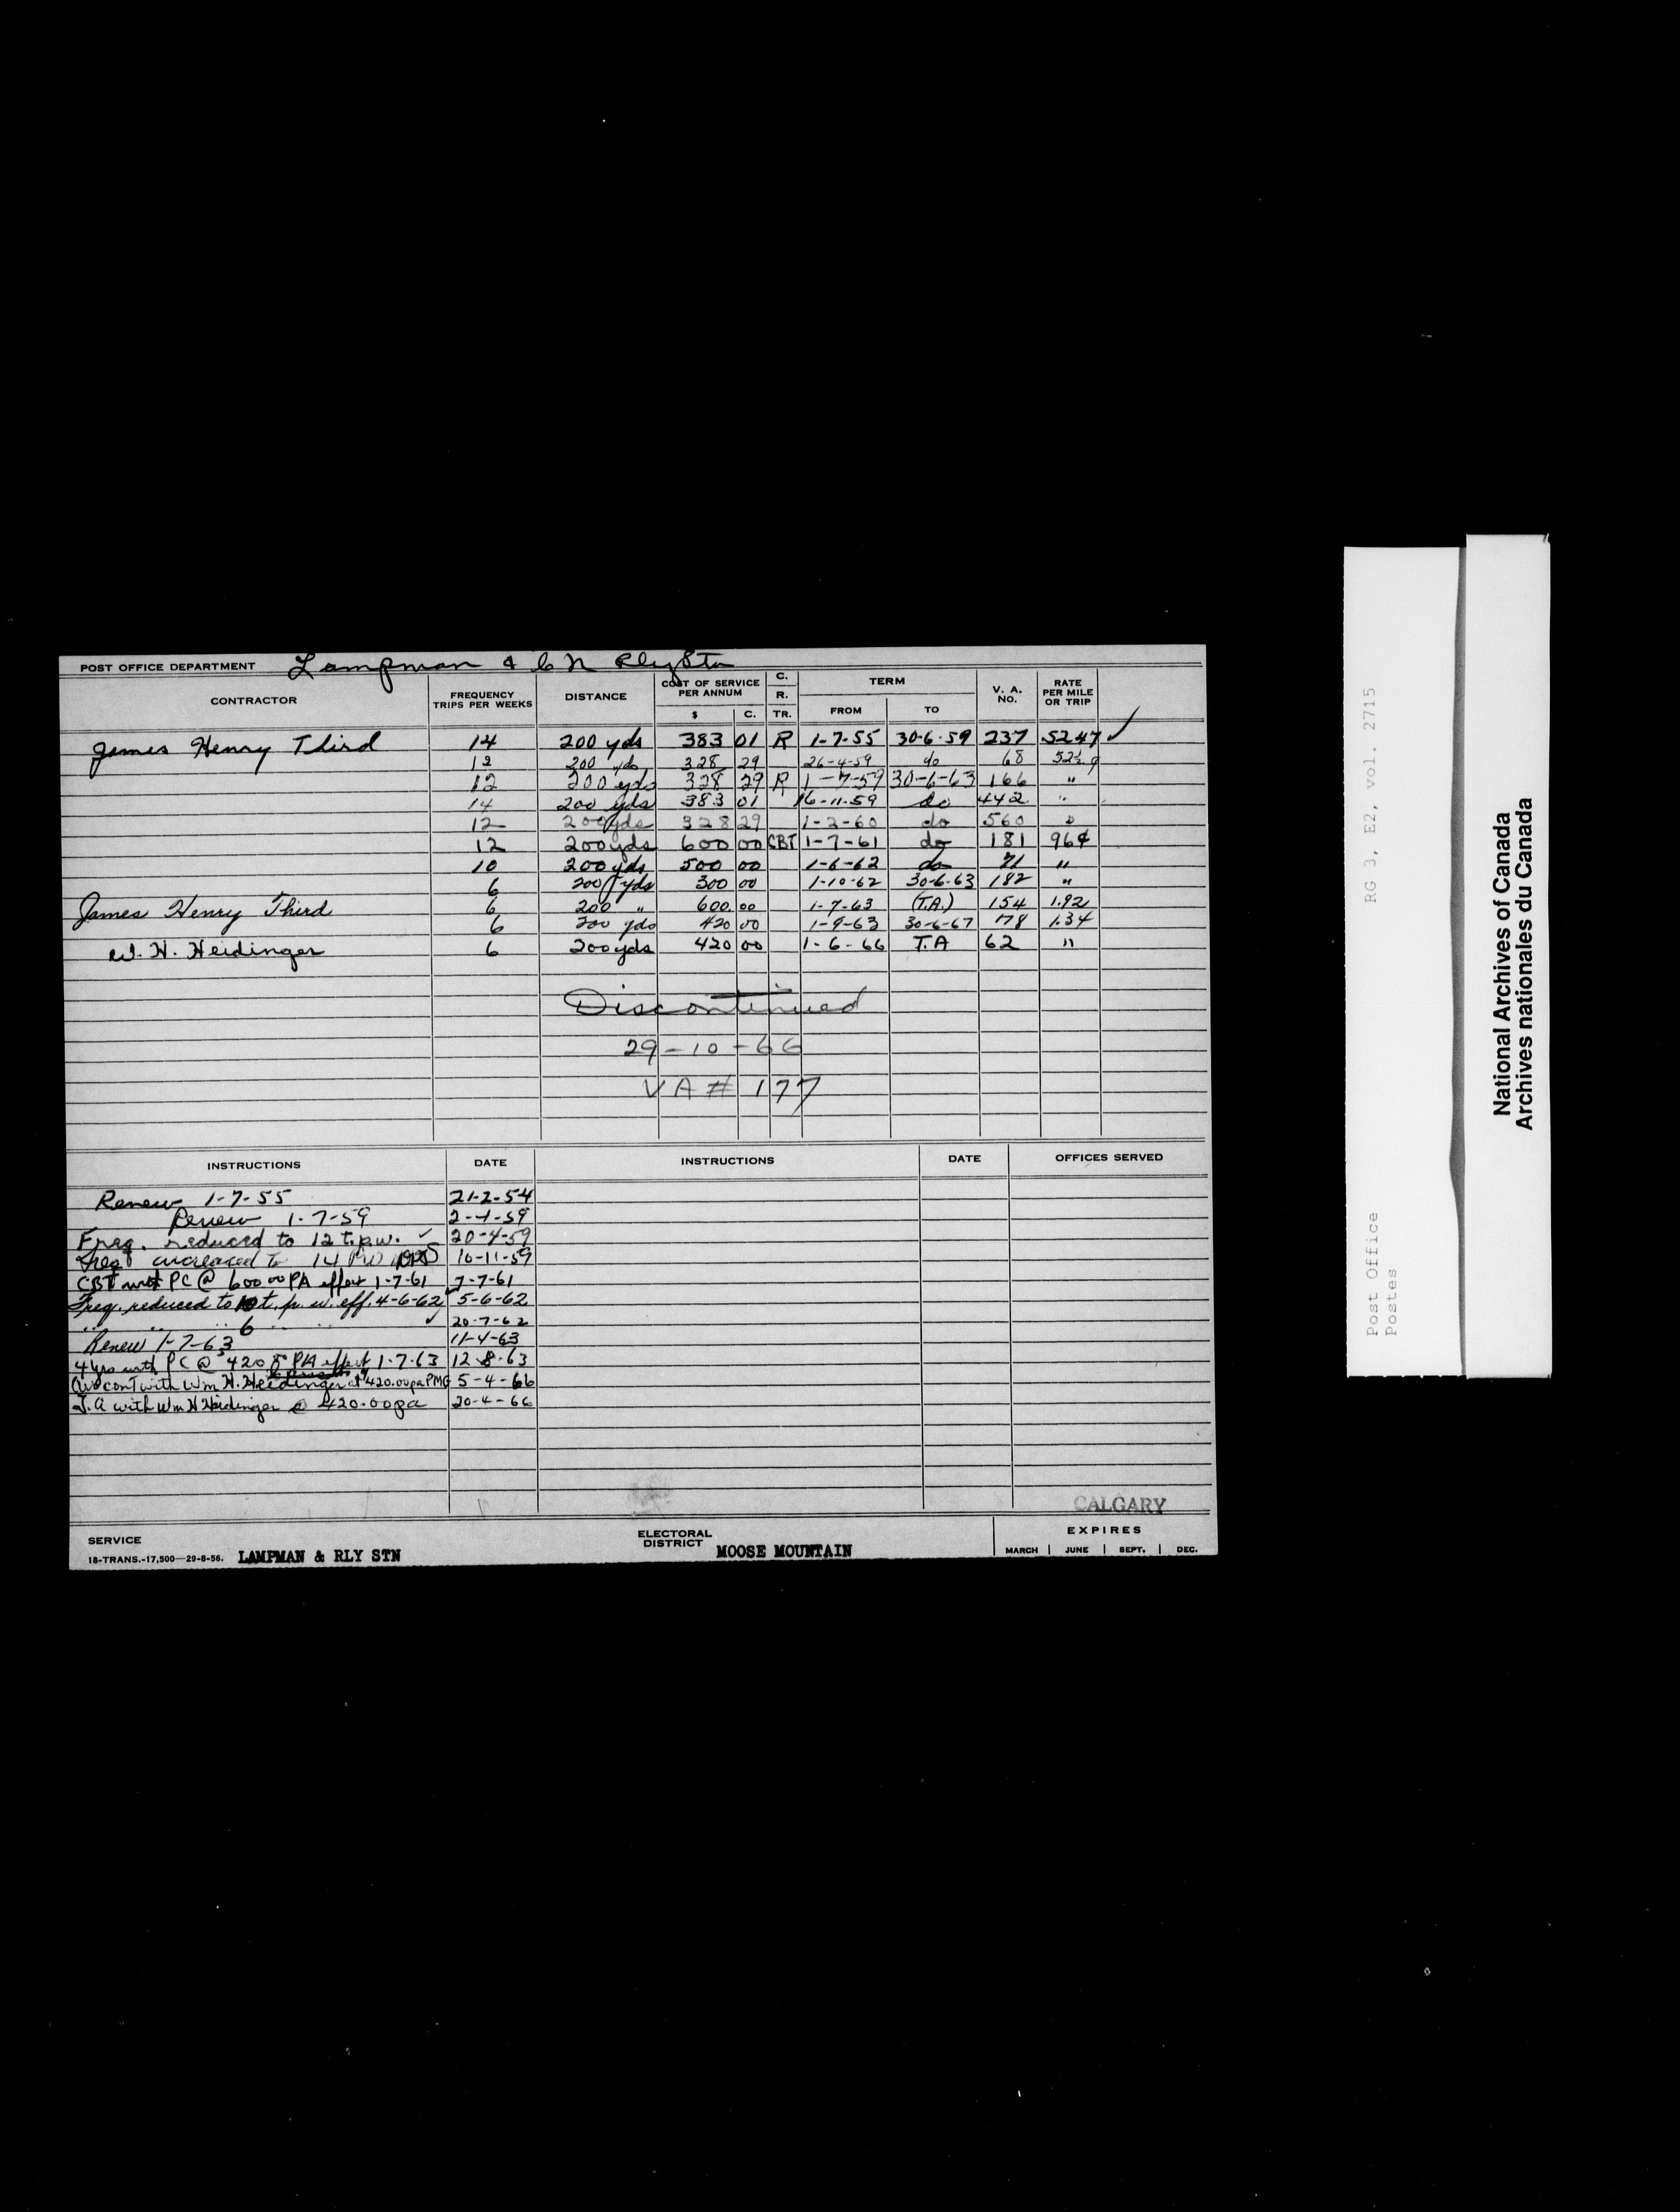 POST OFFICE DEPARTMENT Lampman & CN Rly Stn
CONTRACTOR FREQUENCY TRIPS PER WEEKS DISTANCE COST OF SERVICE PER ANNUM $ C. C. R. TR. TERM FROM TO V. A. NO. RATE PER MILE OR TRIP
James Henry Third 14 200 yds 383 01 R 1-7-55 30-6-59 237 5247 ✓
12 200 yds 328 29 26-4-59 do 68 52½ ¢
12 200 yds 328 29 R 1-7-59 30-6-63 166 "
14 200 yds 383 01 16-11-59 do 442 "
12 200 yds 328 29 1-2-60 do 560 "
12 200 yds 600 00 CBT 1-7-61 do 181 96¢
10 200 yds 500 00 1-6-62 do 71 "
6 200 yds 300 00 1-10-62 30-6-63 182 "
James Henry Third 6 200 " 600 00 1-7-63 (T.A.) 154 1.92
6 200 yds 420 00 1-9-63 30-6-67 178 1.34
W. H. Heidinger 6 200 yds 420 00 1-6-66 T.A 62 "
Discontinued
29-10-66
VA # 177
INSTRUCTIONS DATE INSTRUCTIONS DATE OFFICES SERVED
Renew 1-7-55 21-2-54
Renew 1-7-59 2-4-59
Freq. reduced to 12 t.p.w. ✓ 20-4-59
Freq increased to 14 PW 10-11-59
CBT PC @ 600 00 PA effect 1-7-61 7-7-61
Freq. reduced to 10 t. p. w. eff. 4-6-62 ✓ 5-6-62
" " " 6 " " ✓ 20-7-62
Renew 1-7-63 11-4-63
4 yrs with PC @ 420 PA effect 1-7-63 12-8-63
cont with Wm H. Heidinger at 420.00 pa PMG 5-4-66
T.A with Wm H Heidinger @ 420.00 pa 20-4-66
CALGARY
SERVICE
18-TRANS.-17,500—29-8-56. LAMPMAN & RLY STN
ELECTORAL DISTRICT MOOSE MOUNTAIN
EXPIRES
MARCH | JUNE | SEPT. | DEC.
RG 3, E2, vol. 2715
Post Office
Postes
National Archives of Canada
Archives nationales du Canada